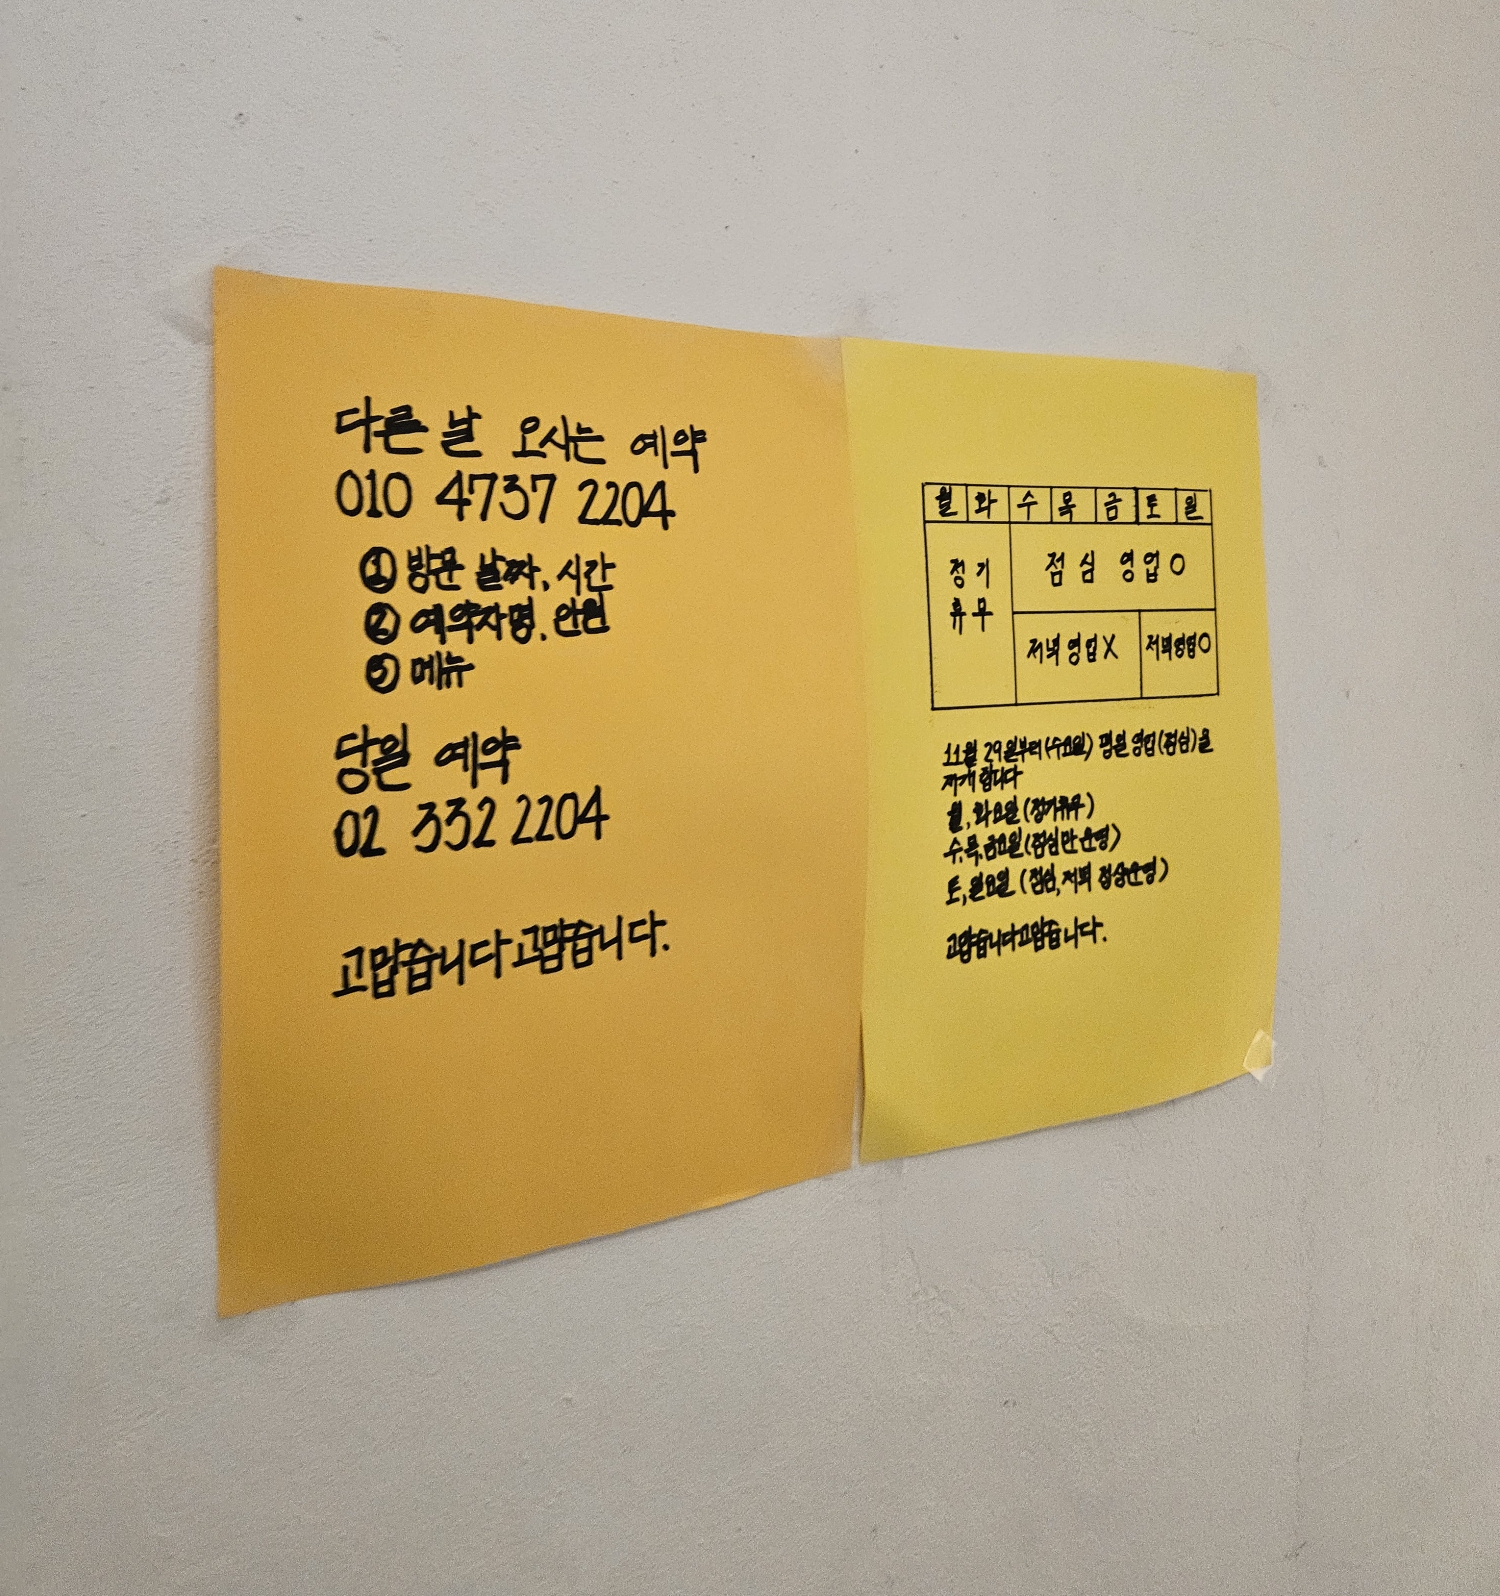 다른 날 오시는 예약
010 4737 2204
① 방문 날짜, 시간
② 예약자명, 인원
③ 메뉴
당일 예약
02 332 2204
고맙습니다고맙습니다.
월 화 수 목 금 토 일
정기 점심 영업 O
휴무
저녁 영업 X 저녁영업O
11월 29일부터(수요일) 평일 영업(점심)을
재개 합니다
월, 화요일 (정기휴무)
수,목,금요일(점심만 운영)
토, 일요일 (점심, 저녁 정상운영)
고맙습니다고맙습니다.